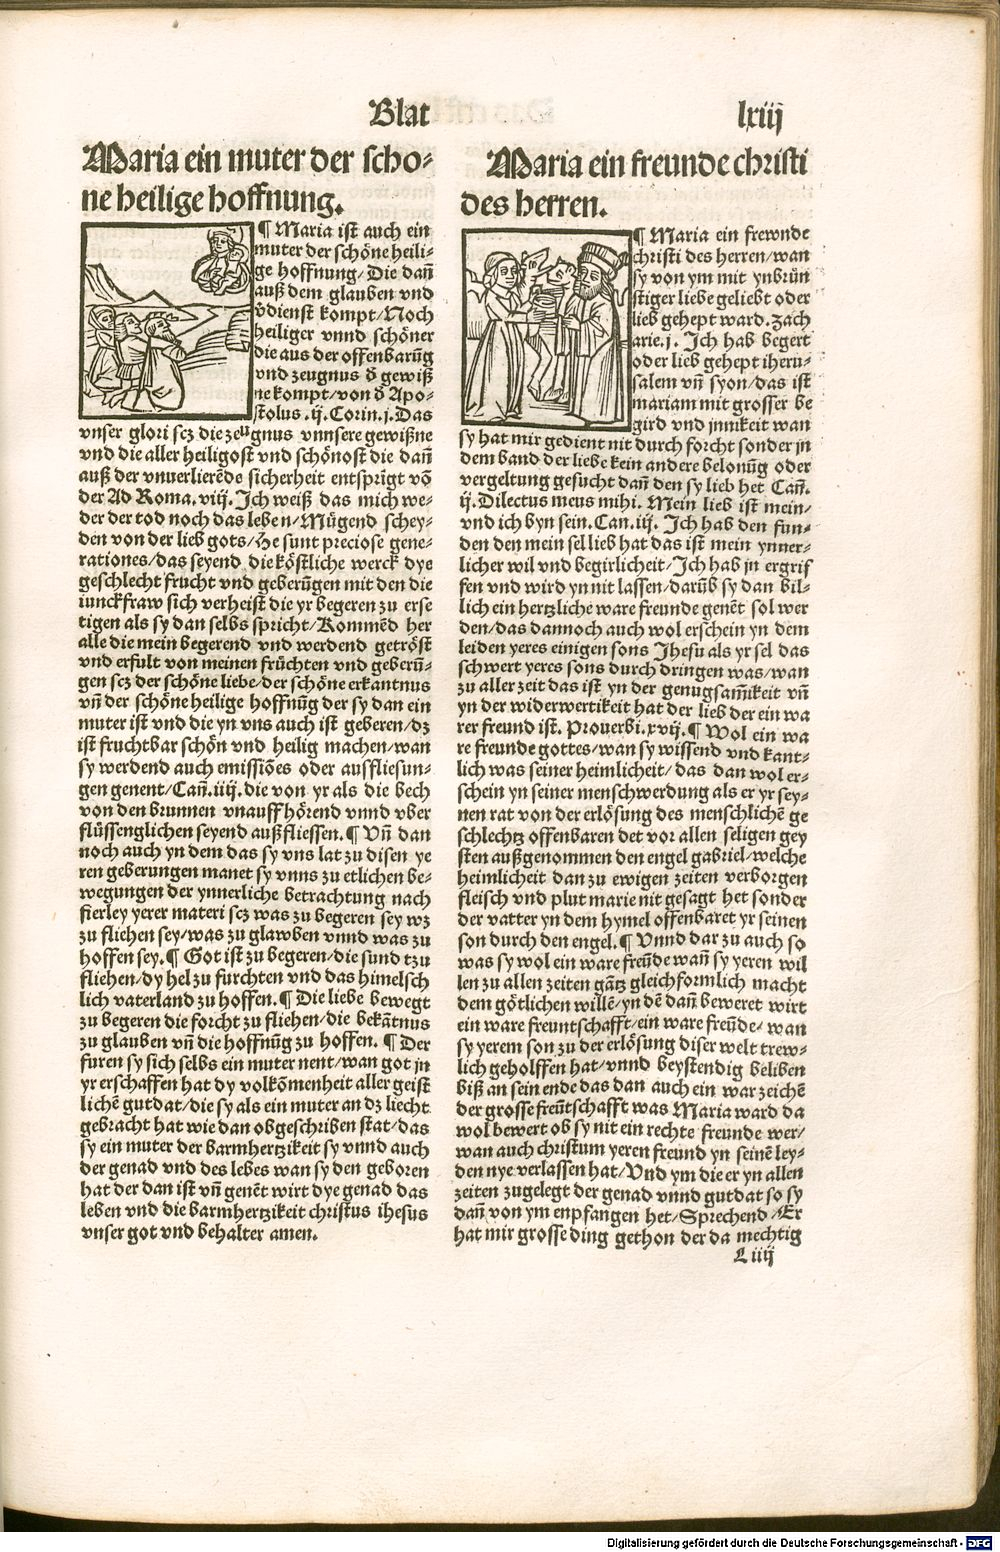 Blat lxiij
Maria ein muter der scho⸗
ne heilige hoffnung.
¶ Maria ist auch ein
muter der schöne heili⸗
ge hoffnung/ Die dañ
auß dem glauben vnd
v̄dienst kompt/ Noch
heiliger vnnd schöner
die aus der offenbarūg
vnd zeugnus d̄ gewiß
ne kompt/ von d̄ Apo⸗
stolus .ij. Corin.j. Das
vnser glori scz die zeugnus vnnsere gewißne
vnd die aller heiligost vnd schönost die dañ
auß der vnuerlierēde sicherheit entsprīgt vō
der Ad Roma. viij. Ich weiß das mich we⸗
der der tod noch das leben/ Mügend schey⸗
den von der lieb gots/ He sunt preciose gene⸗
rationes/ das seyend die köstliche werck dye
geschlecht frucht vnd geberūgen mit den die
iunckfraw sich verheist die yr begeren zu erse
tigen als sy dan selbs spricht/ Kommēd her
alle die mein begerend vnd werdend getröst
vnd erfult von meinen früchten vnd geberū⸗
gen scz der schöne liebe/ der schöne erkantnus
vñ der schöne heilige hoffnūg der sy dan ein
muter ist vnd die yn vns auch ist geberen/ dz
ist fruchtbar schön vnd heilig machen/ wan
sy werdend auch emissiōes oder ausfliesun⸗
gen genent/ Cañ. iiij. die von yr als die bech
von den brunnen vnauffhörend vnnd vber
flüssenglichen seyend außfliessen. ¶ Vñ dan
noch auch yn dem das sy vns lat zu disen ye
ren geberungen manet sy vnns zu etlichen be⸗
wegungen der ynnerliche betrachtung nach
fierley yerer materi scz was zu begeren sey wz
zu fliehen sey/ was zu glawben vnnd was zu
hoffen sey. ¶ Got ist zu begeren/ die sund tzu
fliehen/ dy hel zu furchten vnd das himelsch
lich vaterland zu hoffen. ¶ Die liebe bewegt
zu begeren die forcht zu fliehen/ die bekātnus
zu glauben vñ die hoffnūg zu hoffen. ¶ Der
furen sy sich selbs ein muter nent/ wan got jn
yr erschaffen hat dy volkōmenheit aller geist
lichē gutdat/ die sy als ein muter an dz liecht
gebracht hat wie dan obgeschriben stat/ das
sy ein muter der barmhertzikeit sy vnnd auch
der genad vnd des lebes wan sy den geboren
hat der dan ist vñ genēt wirt dye genad das
leben vnd die barmhertzikeit christus ihesus
vnser got vnd behalter amen.
Maria ein freunde christi
des herren.
¶ Maria ein frewnde
christi des herren/ wan
sy von ym mit ynbrün
stiger liebe geliebt oder
lieb gehept ward. Zach
arie. j. Ich hab begert
oder lieb gehept iheru⸗
salem vñ syon/ das ist
mariam mit grosser be
gird vnd jnnikeit wan
sy hat mir gedient nit durch forcht sonder jn
dem band der liebe kein andere belonūg oder
vergeltung gesucht dañ den sy lieb het Cañ.
ij. Dilectus meus mihi. Mein lieb ist mein⸗
vnd ich byn sein. Can. iij. Ich hab den fun⸗
den den mein sel lieb hat das ist mein ynner⸗
licher wil vnd begirlicheit/ Ich hab jn ergrif
fen vnd wird yn nit lassen/ darūb sy dan bil⸗
lich ein hertzliche ware freunde genēt sol wer
den/ das dannoch auch wol erschein yn dem
leiden yeres einigen sons Jhesu als yr sel das
schwert yeres sons durch dringen was/ wan
zu aller zeit das ist yn der genugsam̄ikeit vñ
yn der widerwertikeit hat der lieb der ein wa
rer freund ist. Prouerbi. xvij. ¶ Wol ein wa
re freunde gottes/ wan sy wissend vnd kant⸗
lich was seiner heimlicheit/ das dan wol er⸗
schein yn seiner menschwerdung als er yr sey⸗
nen rat von der erlösung des menschlichē ge
schlechtz offenbaren det vor allen seligen gey
sten außgenommen den engel gabriel/ welche
heimlicheit dan zu ewigen zeiten verborgen
fleisch vnd plut marie nit gesagt het sonder
der vatter yn dem hymel offenbaret yr seinen
son durch den engel. ¶ Vnnd dar zu auch so
was sy wol ein ware freūde wañ sy yeren wil
len zu allen zeiten gātz gleichformlich macht
dem götlichen willē/ yn dē dañ beweret wirt
ein ware freuntschafft/ ein ware freūde/ wan
sy yerem son zu der erlösung diser welt trew⸗
lich geholffen hat/ vnnd beystendig beliben
biß an sein ende das dan auch ein war zeichē
der grosse freūtschafft was Maria ward da
wol bewert ob sy nit ein rechte freunde wer/
wan auch christum yeren freund yn seinē ley⸗
den nye verlassen hat/ Vnd ym die er yn allen
zeiten zugelegt der genad vnnd gutdat so sy
dañ von ym enpfangen het/ Sprechend/ Er
hat mir grosse ding gethon der da mechtig
L iiij
Digitalisierung gefördert durch die Deutsche Forschungsgemeinschaft - DFG